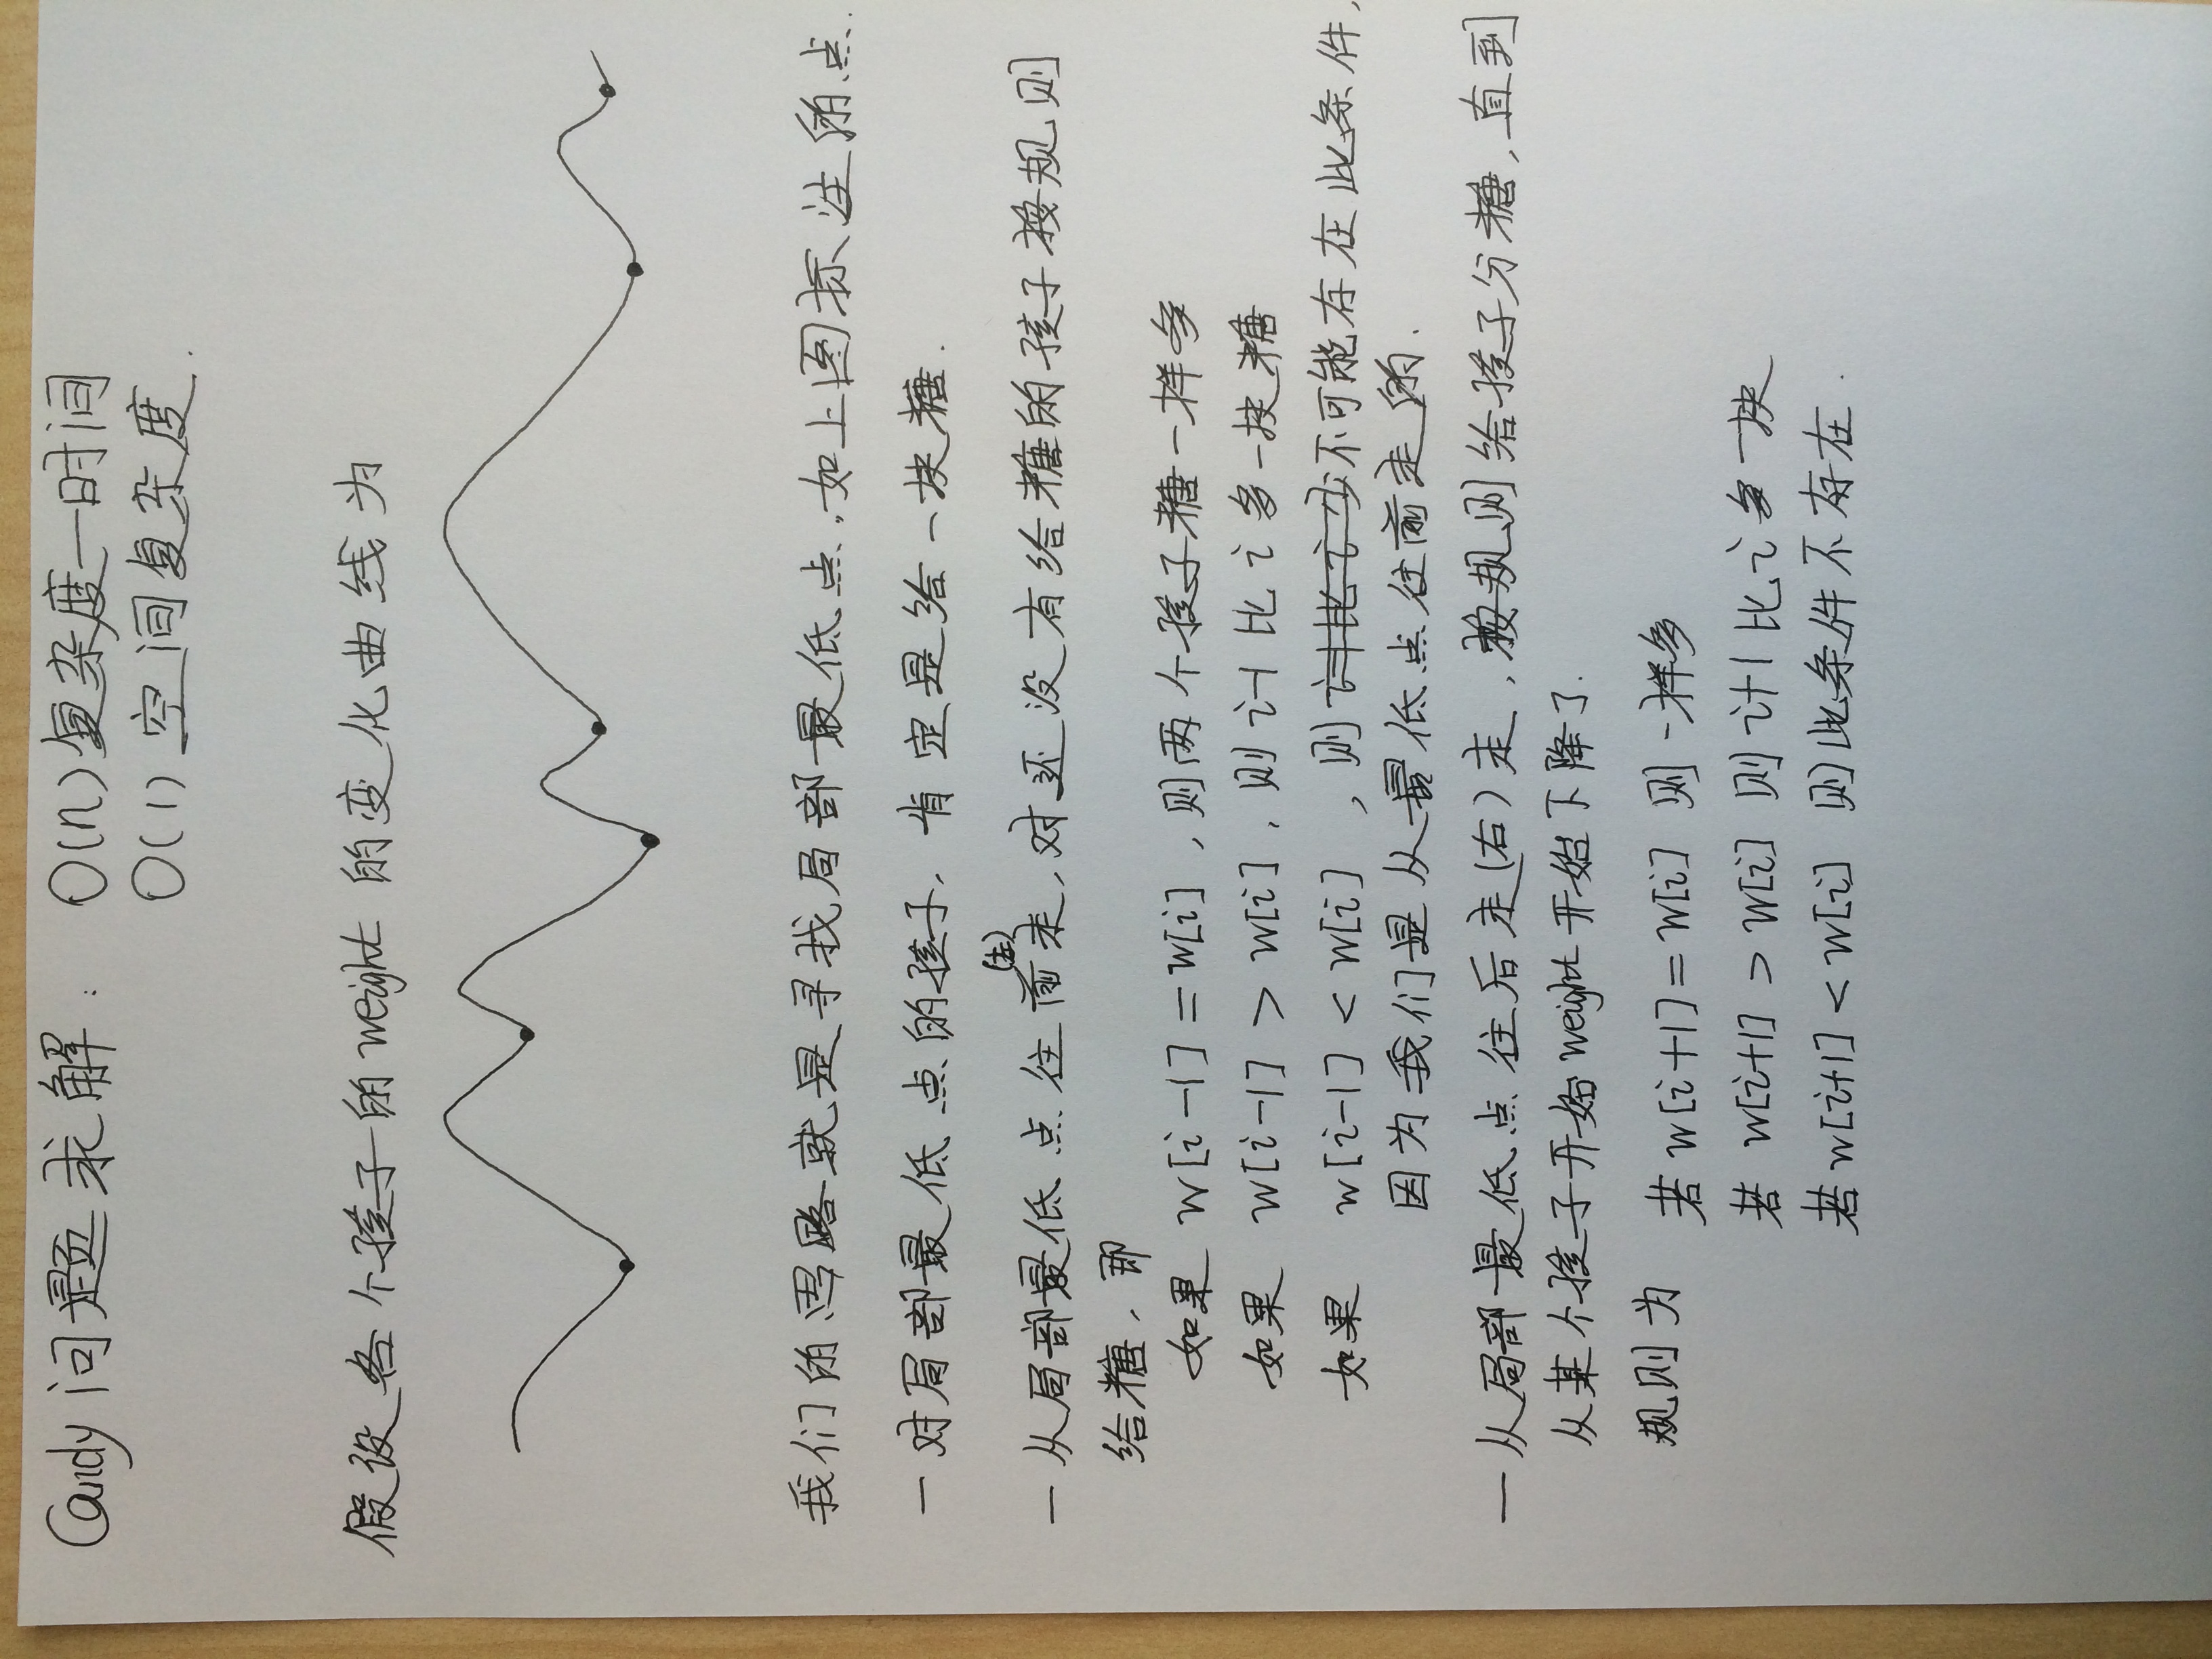 Candy 问题求解: O(n)复杂度—时间
O(1) 空间复杂度.
假设各个孩子的weight 的变化曲线为
我们的思路就是寻找局部最低点.如上图标注的点.
— 对局部最低点的孩子, 肯定是给一块糖.
(左)
— 从局部最低点往前走,对还没有给糖的孩子按规则
给糖, 即
如果 w[i-1]=w[i] ,则两个孩子糖一样多
如果 w[i-1] > w[i], 则 i-1 比 i 多一块糖
如果 w[i-1] < w[i] , 则 i-1比 i 少不可能存在此条件,
因为我们是从最低点往前走的.
— 从局部最低点往后走(右)走, 按规则给孩子分糖, 直到
从某个孩子开始weight开始下降了.
规则为 若 w[i+1]=w[i] 则一样多
若 w[i+1] > w[i] 则 i+1 比 i 多一块
若 w[i+1] < w[i] 则此条件不存在.